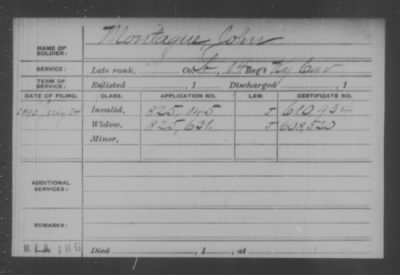 NAME OF SOLDIER: Montague, John
SERVICE: Late rank, Co. 14 Reg't Ky Cav
TERM OF SERVICE: Enlisted , 1 Discharged , 1
DATE OF FILING. CLASS. APPLICATION NO. LAW. CERTIFICATE NO.
Invalid, 825,145 610,934
Widow, 825,631. 608,520
Minor,
ADDITIONAL SERVICES:
REMARKS:
Died , 1 , at